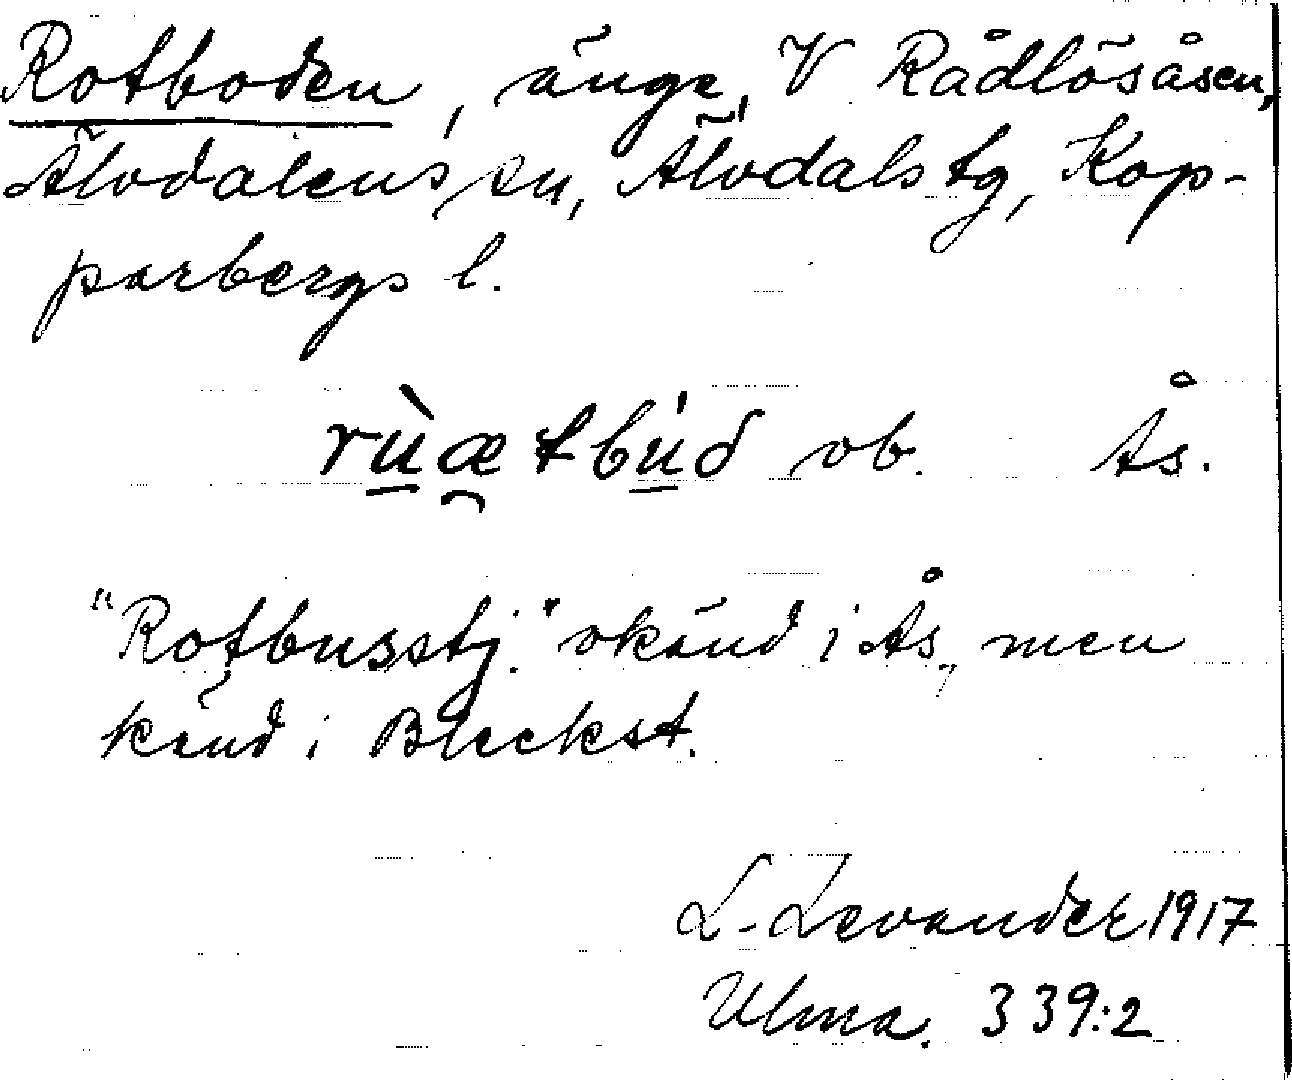 Rotboden, änge, V Rådlösåsen,
Älvdalens sn, Älvdals tg, Kop-
parbergs l.
rù̠æ̯tbú̠d ob. Ås.
"Rotbusstj." okänd i Ås, men
känd i Bleckst.
L. Levander 1917
Ulma. 339:2